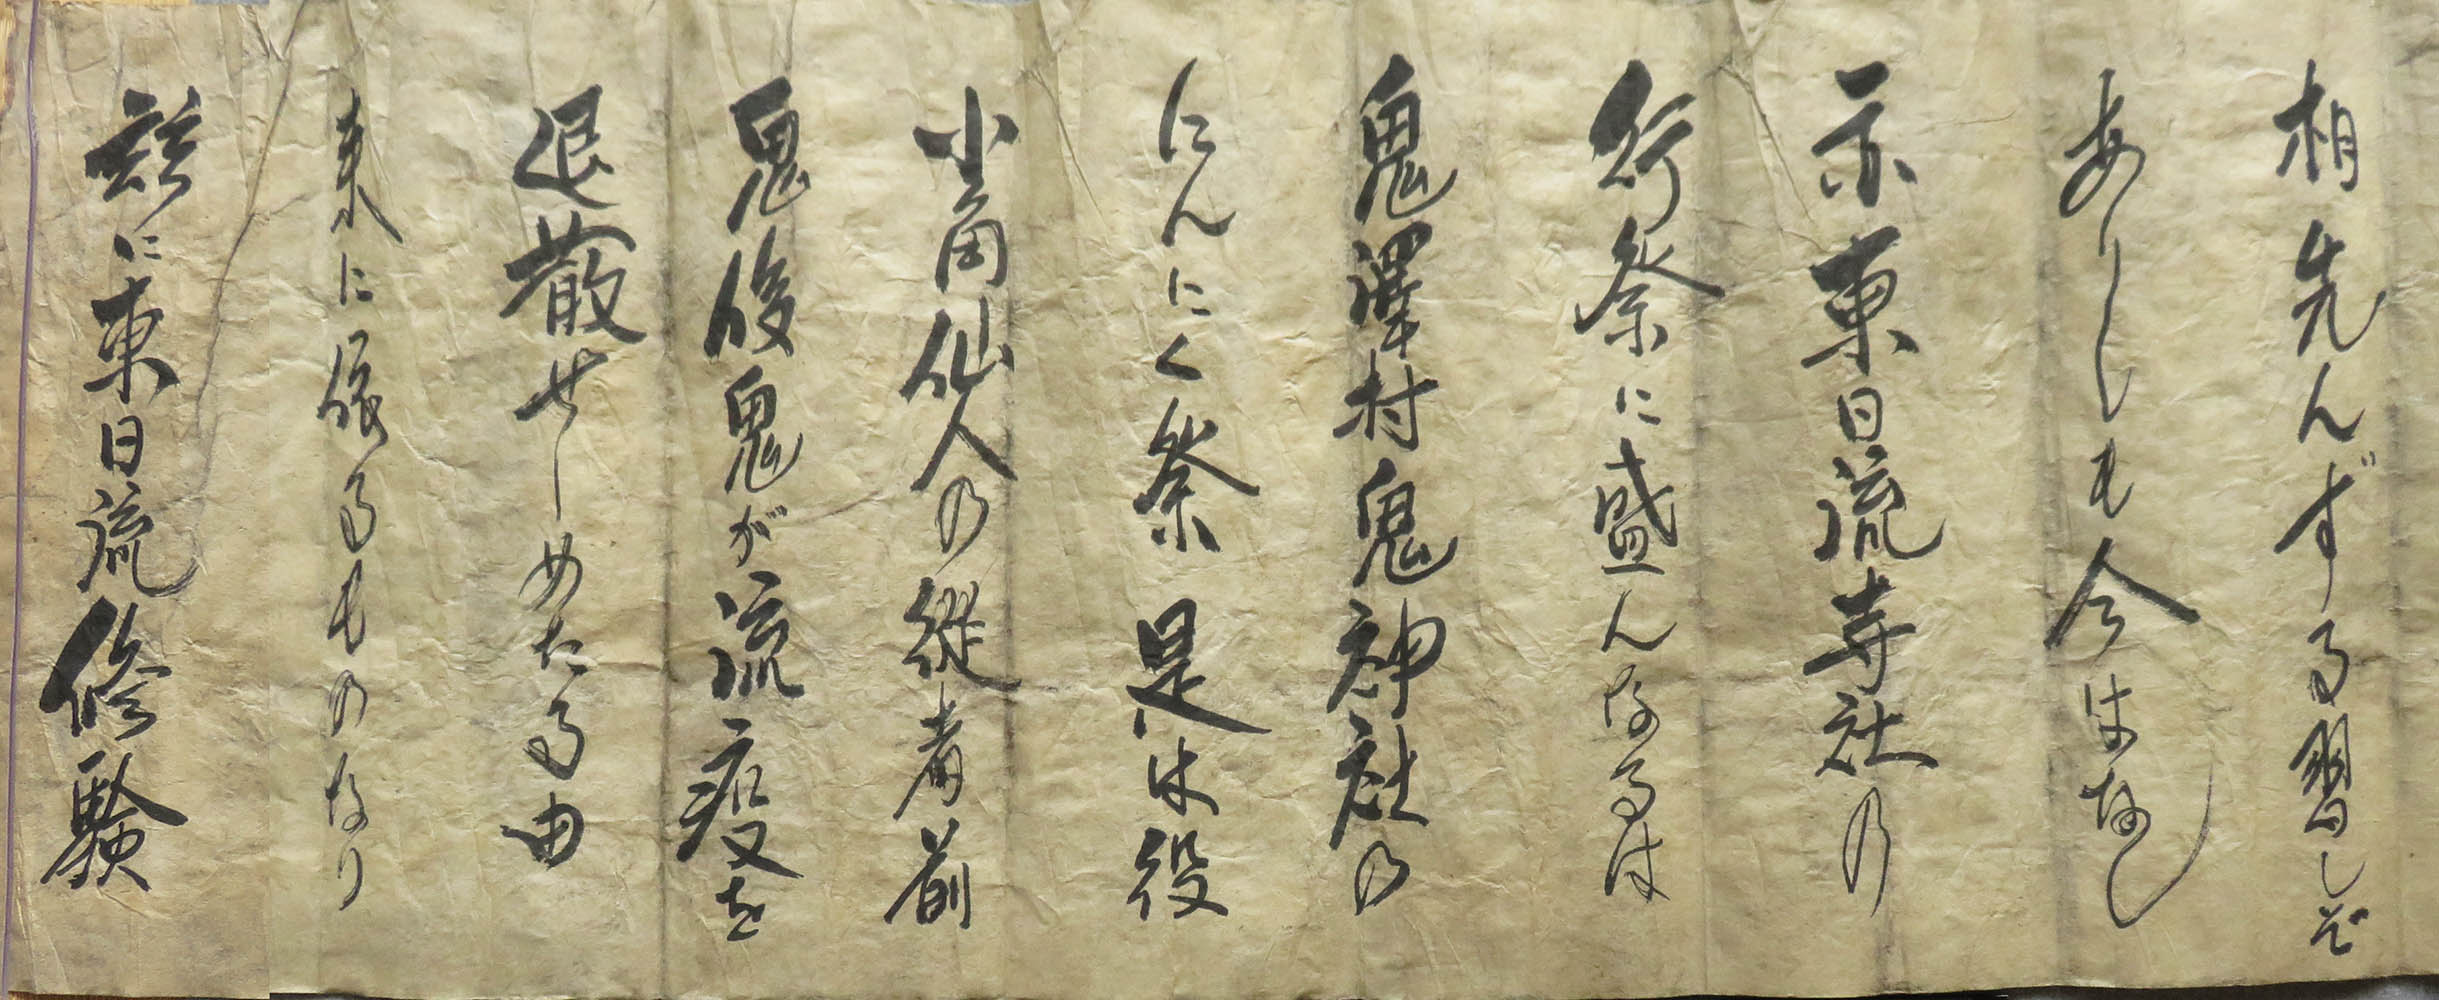 相先んずる習しぞ
ありしも今はなし
亦東日流寺社の
行祭に盛んなるは
鬼澤村鬼神社の
にんにく祭是は役
小角仙人の縦者前
鬼後鬼が流疫を
退散せしめたる由
来に依るものなり
玆に東日流修験